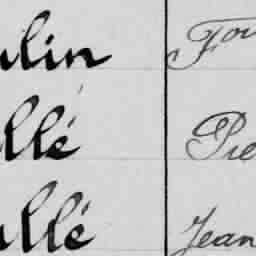 ulin Fou
llé Pie
allé Jean